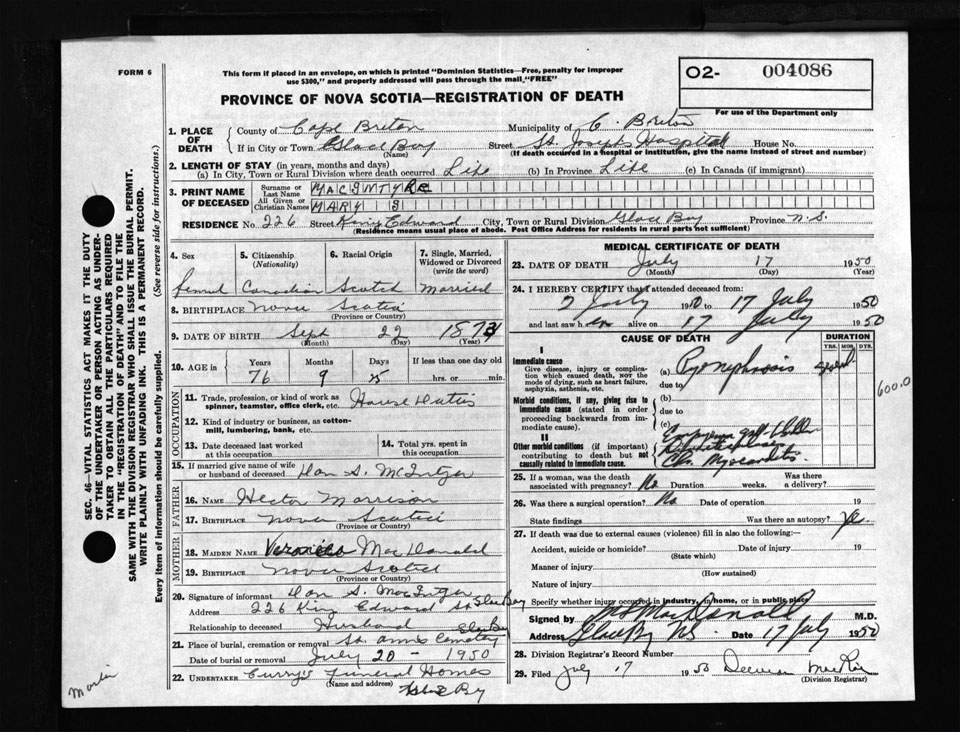 FORM 6
This form if placed in an envelope, on which is printed "Dominion Statistics—Free, penalty for improper
use $300," and properly addressed will pass through the mail "FREE"
PROVINCE OF NOVA SCOTIA—REGISTRATION OF DEATH
O2- 004086
For use of the Department only
1. PLACE OF DEATH
County of Cape Breton Municipality of C. Breton
If in City or Town Glace Bay Street St. Joseph's Hospital House No.
(Name) (If death occurred in a hospital or institution, give the name instead of street and number)
2. LENGTH OF STAY (in years, months and days)
(a) In City, Town or Rural Division where death occurred Life (b) In Province Life (c) In Canada (if immigrant)
3. PRINT NAME OF DECEASED
Surname or Last Name MACINTYRE
All Given or Christian Names MARY S
RESIDENCE No. 226 Street King Edward City, Town or Rural Division Glace Bay Province N.S.
(Residence means usual place of abode. Post Office Address for residents in rural parts not sufficient)
4. Sex 5. Citizenship (Nationality) 6. Racial Origin 7. Single, Married, Widowed or Divorced (write the word)
Canadian Scotch Married
8. BIRTHPLACE Nova Scotia
(Province or Country)
9. DATE OF BIRTH Sept 22 187
(Month) (Day) (Year)
10. AGE in Years Months Days If less than one day old
76 9 25 hrs. or min.
OCCUPATION
11. Trade, profession, or kind of work as spinner, teamster, office clerk, etc. House Duties
12. Kind of industry or business, as cotton-mill, lumbering, bank, etc.
13. Date deceased last worked at this occupation
14. Total yrs. spent in this occupation
15. If married give name of wife or husband of deceased Dan S. McIntyre
FATHER
16. NAME Hector Morrison
17. BIRTHPLACE Nova Scotia
(Province or Country)
MOTHER
18. MAIDEN NAME Veronica MacDonald
19. BIRTHPLACE Nova Scotia
(Province or Country)
20. Signature of informant Dan S. MacIntyre
Address 226 King Edward St Glace Bay
Relationship to deceased Husband
21. Place of burial, cremation or removal St. Annes Cemetery Glace Bay
Date of burial or removal July 20 - 1950
22. UNDERTAKER Curry's Funeral Homes
(Name and address) Glace Bay
MEDICAL CERTIFICATE OF DEATH
23. DATE OF DEATH July 17 1950
(Month) (Day) (Year)
24. I HEREBY CERTIFY that I attended deceased from:
2 July 1950 to 17 July 1950
and last saw her alive on 17 July 1950
CAUSE OF DEATH
DURATION
YRS. MOS. DYS.
I
Immediate cause
Give disease, injury or complication which caused death, not the mode of dying, such as heart failure, asphyxia, asthenia, etc.
(a) Pyonephrosis
due to
600.0
Morbid conditions, if any, giving rise to immediate cause (stated in order proceeding backwards from immediate cause).
(b)
due to
(c)
II
Other morbid conditions (if important) contributing to death but not causally related to immediate cause.
Empyema gall bladder
Chr. Myocarditis
25. If a woman, was the death associated with pregnancy? No Duration weeks. Was there a delivery?
26. Was there a surgical operation? No Date of operation 19
State findings Was there an autopsy? Yes.
27. If death was due to external causes (violence) fill in also the following:—
Accident, suicide or homicide? Date of injury 19
(State which)
Manner of injury
(How sustained)
Nature of injury
Specify whether injury occurred in industry, in home, or in public place
Signed by M.D.
Address Glace Bay N.S. Date 17 July 1950
28. Division Registrar's Record Number
29. Filed July 17 1950
(Division Registrar)
SEC. 46—VITAL STATISTICS ACT MAKES IT THE DUTY
OF THE UNDERTAKER OR PERSON ACTING AS UNDERTAKER TO OBTAIN ALL THE PARTICULARS REQUIRED
IN THE "REGISTRATION OF DEATH" AND TO FILE THE
SAME WITH THE DIVISION REGISTRAR WHO SHALL ISSUE THE BURIAL PERMIT.
WRITE PLAINLY WITH UNFADING INK. THIS IS A PERMANENT RECORD.
Every item of information should be carefully supplied. (See reverse side for instructions.)